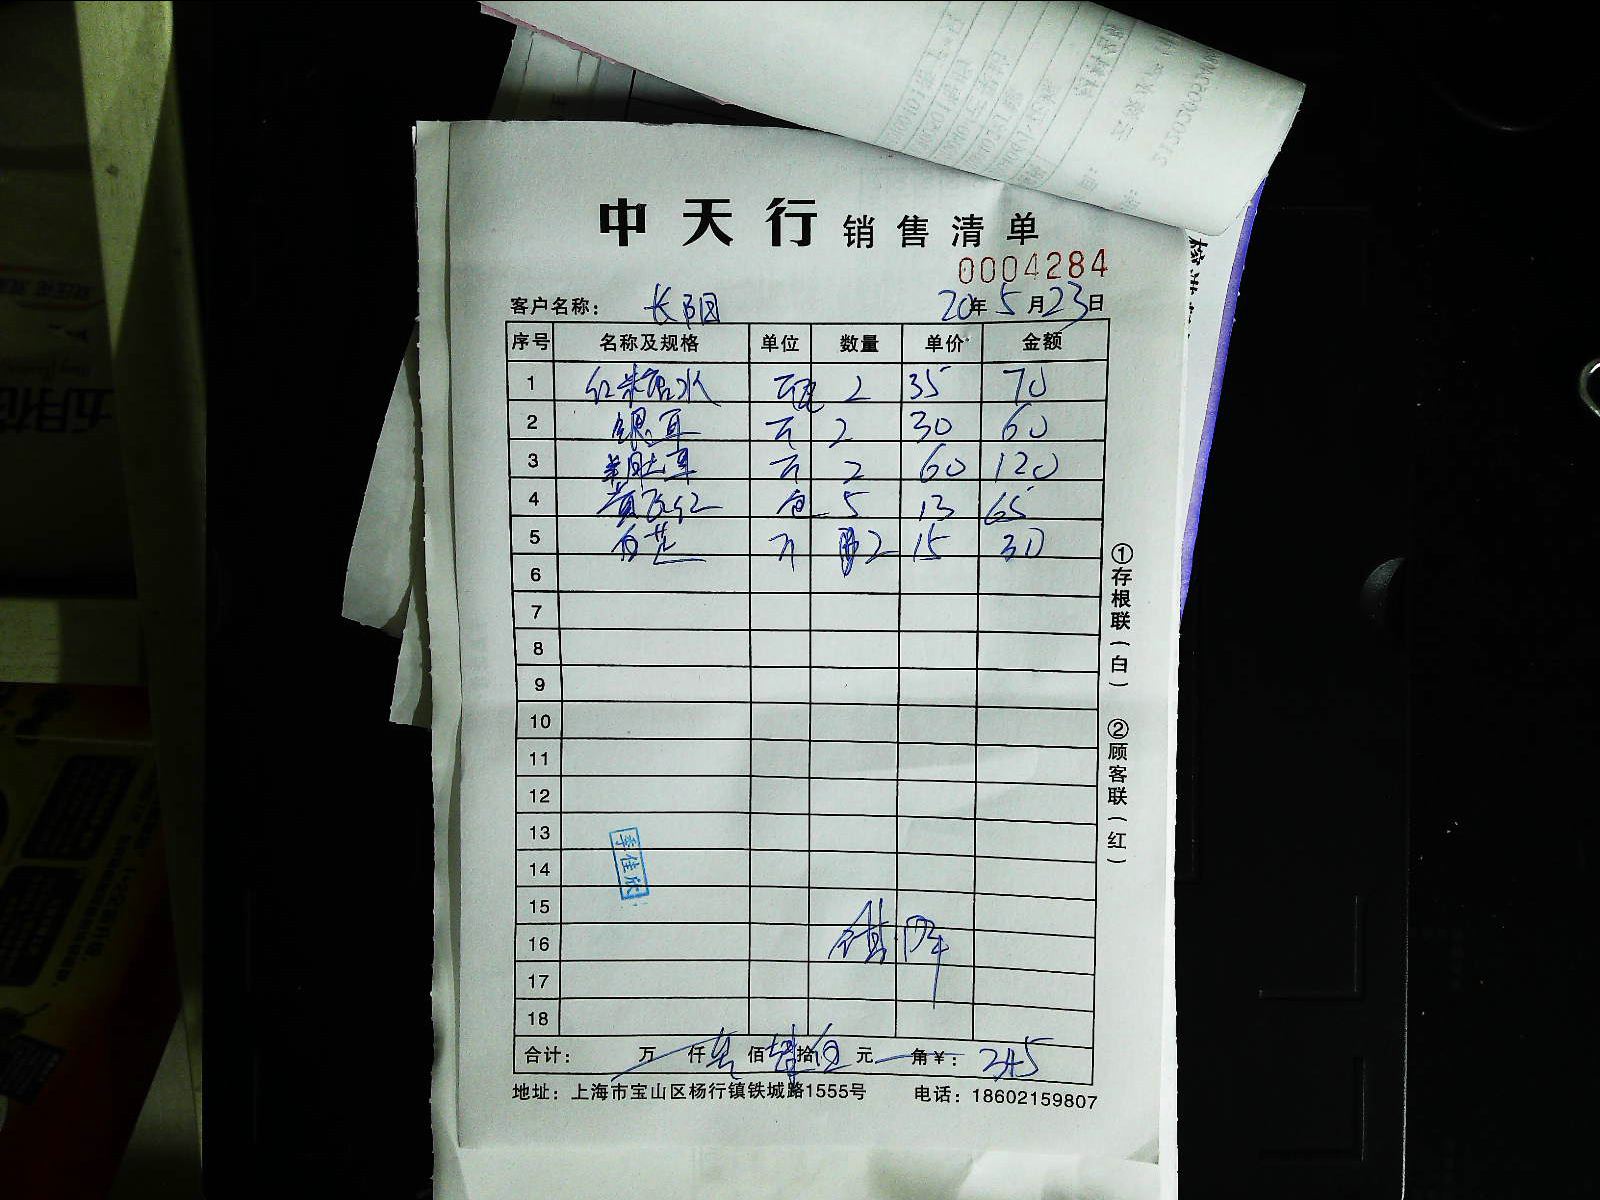 中天行 销售清单
0004284
客户名称： 长阳园 20年5月23日
序号 名称及规格 单位 数量 单价 金额
1 红米醋水 2 35 70
2 银耳 斤 2 30 60
3 羊肚丝 斤 2 60 120
4 黄飞红 包 5 13 65
5 白芷 斤 2 15 30
6
7
8
9
10
11
12
13
14
15
16
17
18
李佳欣
合计： 万 仟 叁 佰 肆 拾 伍 元 角 ¥： 345
地址：上海市宝山区杨行镇铁城路1555号 电话：18602159807
①存根联（白） ②顾客联（红）